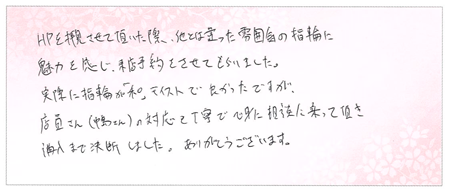 HPを拝見させて頂いた際、他とは違った雰囲気の指輪に
魅力を感じ、来店予約をさせてもらいました。
実際に指輪が「和」テイストで良かったですが、
店員さん(鴨さん)の対応も丁寧で心身に相談に乗って頂き
購入まで決断しました。ありがとうございます。